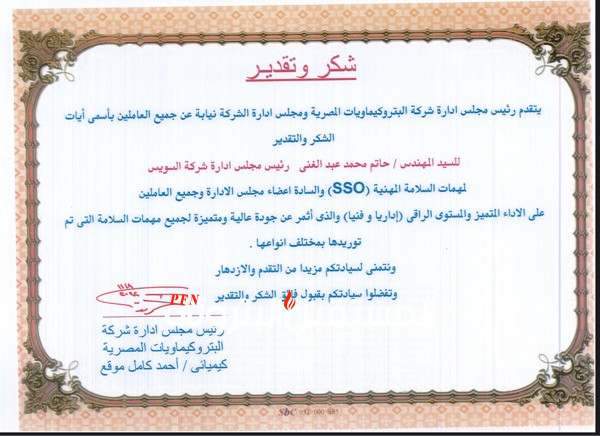 شكر وتقدير
يتقدم رئيس مجلس ادارة شركة البتروكيماويات المصرية ومجلس ادارة الشركة نيابة عن جميع العاملين بأسمى أيات
الشكر والتقدير
للسيد المهندس / حاتم محمد عبد الغنى رئيس مجلس ادارة شركة السويس
لمهمات السلامة المهنية (SSO) والسادة اعضاء مجلس الادارة وجميع العاملين
على الاداء المتميز والمستوى الراقى (إداريا و فنيا) والذى أثمر عن جودة عالية ومتميزة لجميع مهمات السلامة التى تم
توريدها بمختلف انواعها .
ونتمنى لسيادتكم مزيدا من التقدم والازدهار
وتفضلوا سيادتكم بقبول فائق الشكر والتقدير
PFN
رئيس مجلس ادارة شركة
البتروكيماويات المصرية
كيميائى / أحمد كامل موقع